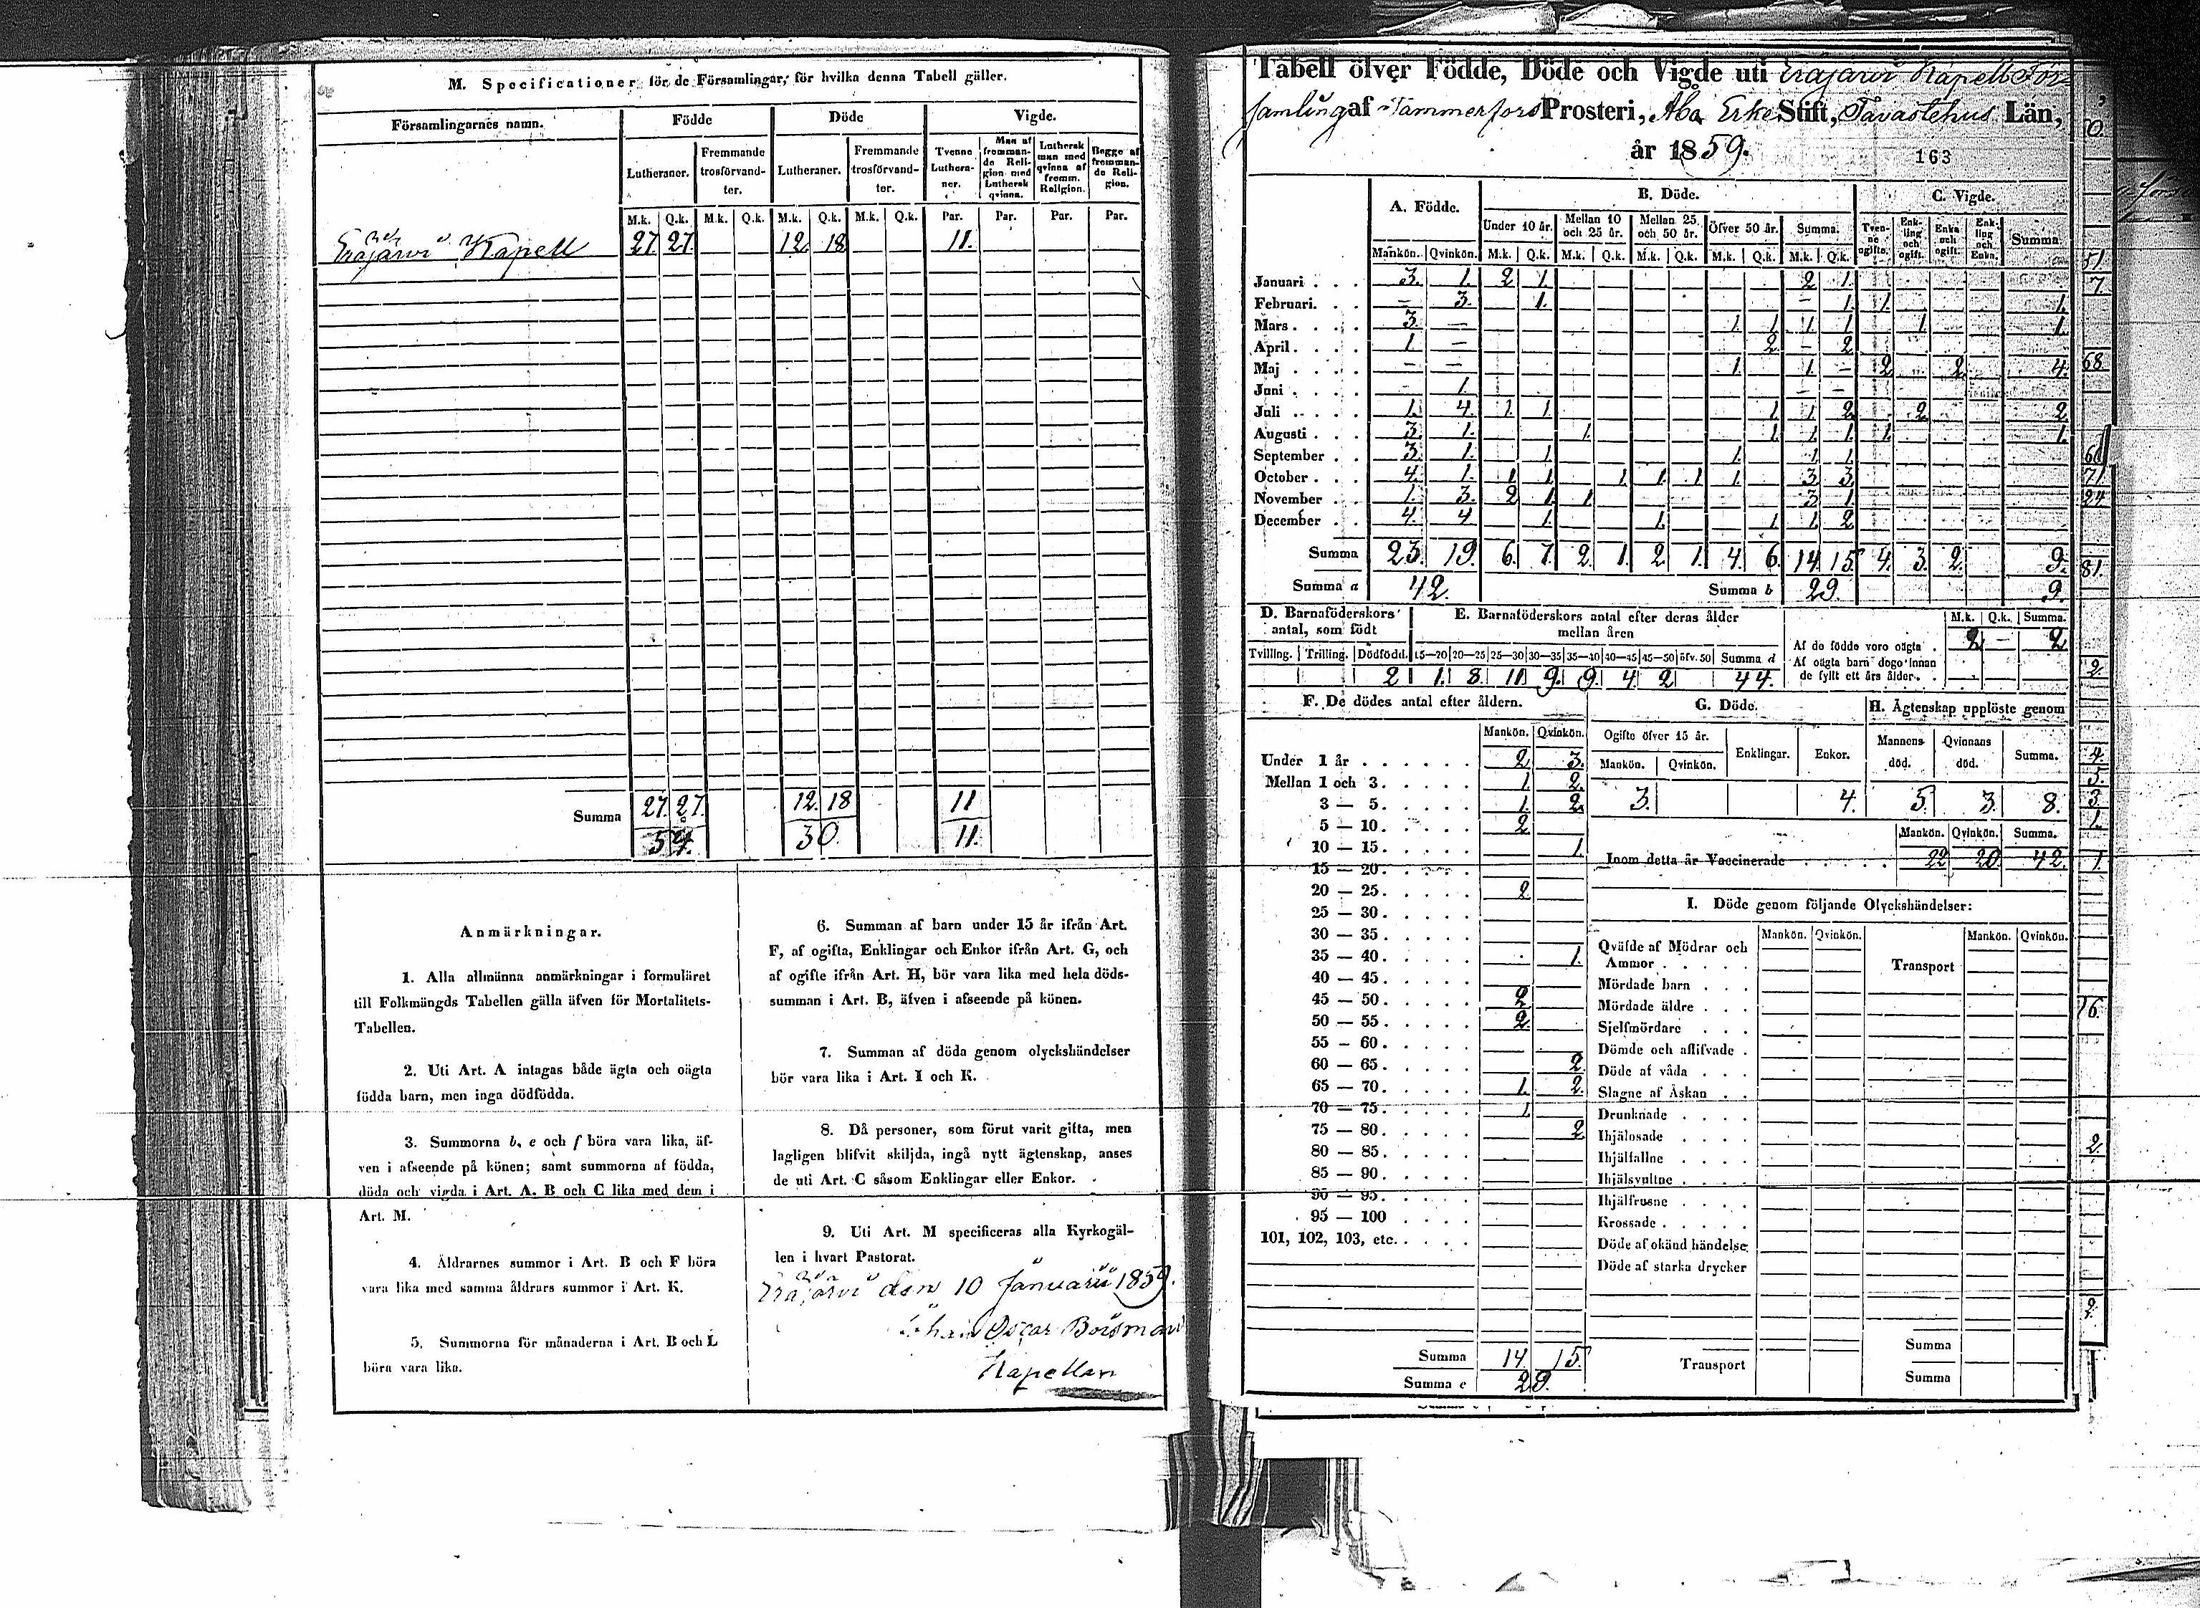 M. Specificationer för de Församlingar, för hvilka denna Tabell gäller.
Församlingarnes namn.
Födde
Döde
Vigde.
Lutheraner.
Fremmande trosförvandter.
Lutheraner.
Fremmande trosförvandter.
Tvenne Lutheraner.
Man af fremmande Religion med Luthersk qvinna.
Luthersk man med qvinna af fremm. Religion.
Begge af fremmande Religion.
M.k. Q.k. M.k. Q.k. M.k. Q.k. M.k. Q.k. Par. Par. Par. Par.
Eräjärvi Kapell 27. 27. 12 18 11.
Summa 27. 27. 12. 18 11
54. 30 11.
Anmärkningar.
1. Alla allmänna anmärkningar i formuläret
till Folkmängds Tabellen gälla äfven för Mortalitets-
Tabellen.
2. Uti Art. A intagas både ägta och oägta
födda barn, men inga dödfödda.
3. Summorna b, e och f böra vara lika, äf-
ven i afseende på könen; samt summorna af födda,
döda och vigda i Art. A. B och C lika med dem i
Art. M.
4. Åldrarnes summor i Art. B och F böra
vara lika med samma åldrars summor i Art. K.
5. Summorna för månaderna i Art. B och L
böra vara lika.
6. Summan af barn under 15 år ifrån Art.
F, af ogifta, Enklingar och Enkor ifrån Art. G, och
af ogifte ifrån Art. H, bör vara lika med hela döds-
summan i Art. B, äfven i afseende på könen.
7. Summan af döda genom olyckshändelser
bör vara lika i Art. I och K.
8. Då personer, som förut varit gifta, men
lagligen blifvit skiljda, ingå nytt ägtenskap, anses
de uti Art. C såsom Enklingar eller Enkor.
9. Uti Art. M specificeras alla Kyrkogäl-
len i hvart Pastorat.
Eräjärvi den 10 Januarii 1859.
Johan Oscar Boisman
Kapellan
Tabell öfver Födde, Döde och Vigde uti Eräjärvi Kapell För
samling af Tammerfors Prosteri, Åbo Erke Stift, Tavastehus Län,
år 1859.
163
A. Födde.
B. Döde.
C. Vigde.
Under 10 år. Mellan 10 och 25 år. Mellan 25 och 50 år. Öfver 50 år. Summa.
Tvenne ogifte. Enkling och ogift. Enka och ogift. Enkling och Enka. Summa
Mankön. Qvinkön. M.k. Q.k. M.k. Q.k. M.k. Q.k. M.k. Q.k. M.k. Q.k.
Januari 3. 1. 2 1. 2 1.
Februari. – 3. 1. – 1. 1. 1.
Mars 3. – 1. 1 1. 1 1. 1.
April 1 – 2 – 2
Maj – – 1. 1 – 2 2 4.
Juni – 1. – –
Juli 1. 4. 1. 1. 1. 1. 2 2. 2
Augusti 3. 1. 1. 1. 1. 1. 1. 1.
September 3. 1. 1. 1. 1. 1.
October 4. 1. 1. 1. 1. 1. 1 1. 3 3.
November 1. 3. 2 1. 1 3. 1.
December 4. 4 1. 1. 1 1. 2
Summa 23. 19. 6. 7. 2. 1. 2. 1. 4 6. 14 15 4. 3. 2. 9.
Summa a 42. Summa b 29. 9.
D. Barnaföderskors antal, som födt
E. Barnaföderskors antal efter deras ålder mellan åren
Tvilling. Trilling. Dödfödd. 15–20 20–25 25–30 30–35 35–40 40–45 45–50 öfv. 50 Summa d
2 1. 8. 11 9. 9. 4 2 44.
M.k. Q.k. Summa.
Af de födde voro oägta 2 – 2
Af oägta barn dogo innan
de fyllt ett års ålder
F. De dödes antal efter åldern.
Mankön. Qvinkön.
Under 1 år 2 3.
Mellan 1 och 3 1. 2.
3 — 5 1. 2
5 — 10 2
10 — 15 1.
15 — 20
20 — 25 2
25 — 30
30 — 35
35 — 40 1.
40 — 45
45 — 50 2
50 — 55 2.
55 — 60
60 — 65 2
65 — 70 1. 2.
70 — 75 1.
75 — 80 2
80 — 85
85 — 90
90 — 95
95 — 100
101, 102, 103, etc.
Summa 14. 15.
Summa e 29.
G. Döde.
Ogifte öfver 15 år. Enklingar. Enkor.
Mankön. Qvinkön.
3. 4.
H. Ägtenskap upplöste genom
Mannens död. Qvinnans död. Summa.
5. 3. 8.
Mankön. Qvinkön. Summa.
Inom detta år Vaccinerade 22 20 42.
I. Döde genom följande Olyckshändelser:
Mankön. Qvinkön. Mankön. Qvinkön.
Qväfde af Mödrar och
Ammor
Transport
Mördade barn
Mördade äldre
Sjelfmördare
Dömde och aflifvade
Döde af våda
Slagne af Åskan
Drunknade
Ihjälosade
Ihjälfallne
Ihjälsvultne
Ihjälfrusne
Krossade
Döde af okänd händelse
Döde af starka drycker
Transport
Summa
Summa